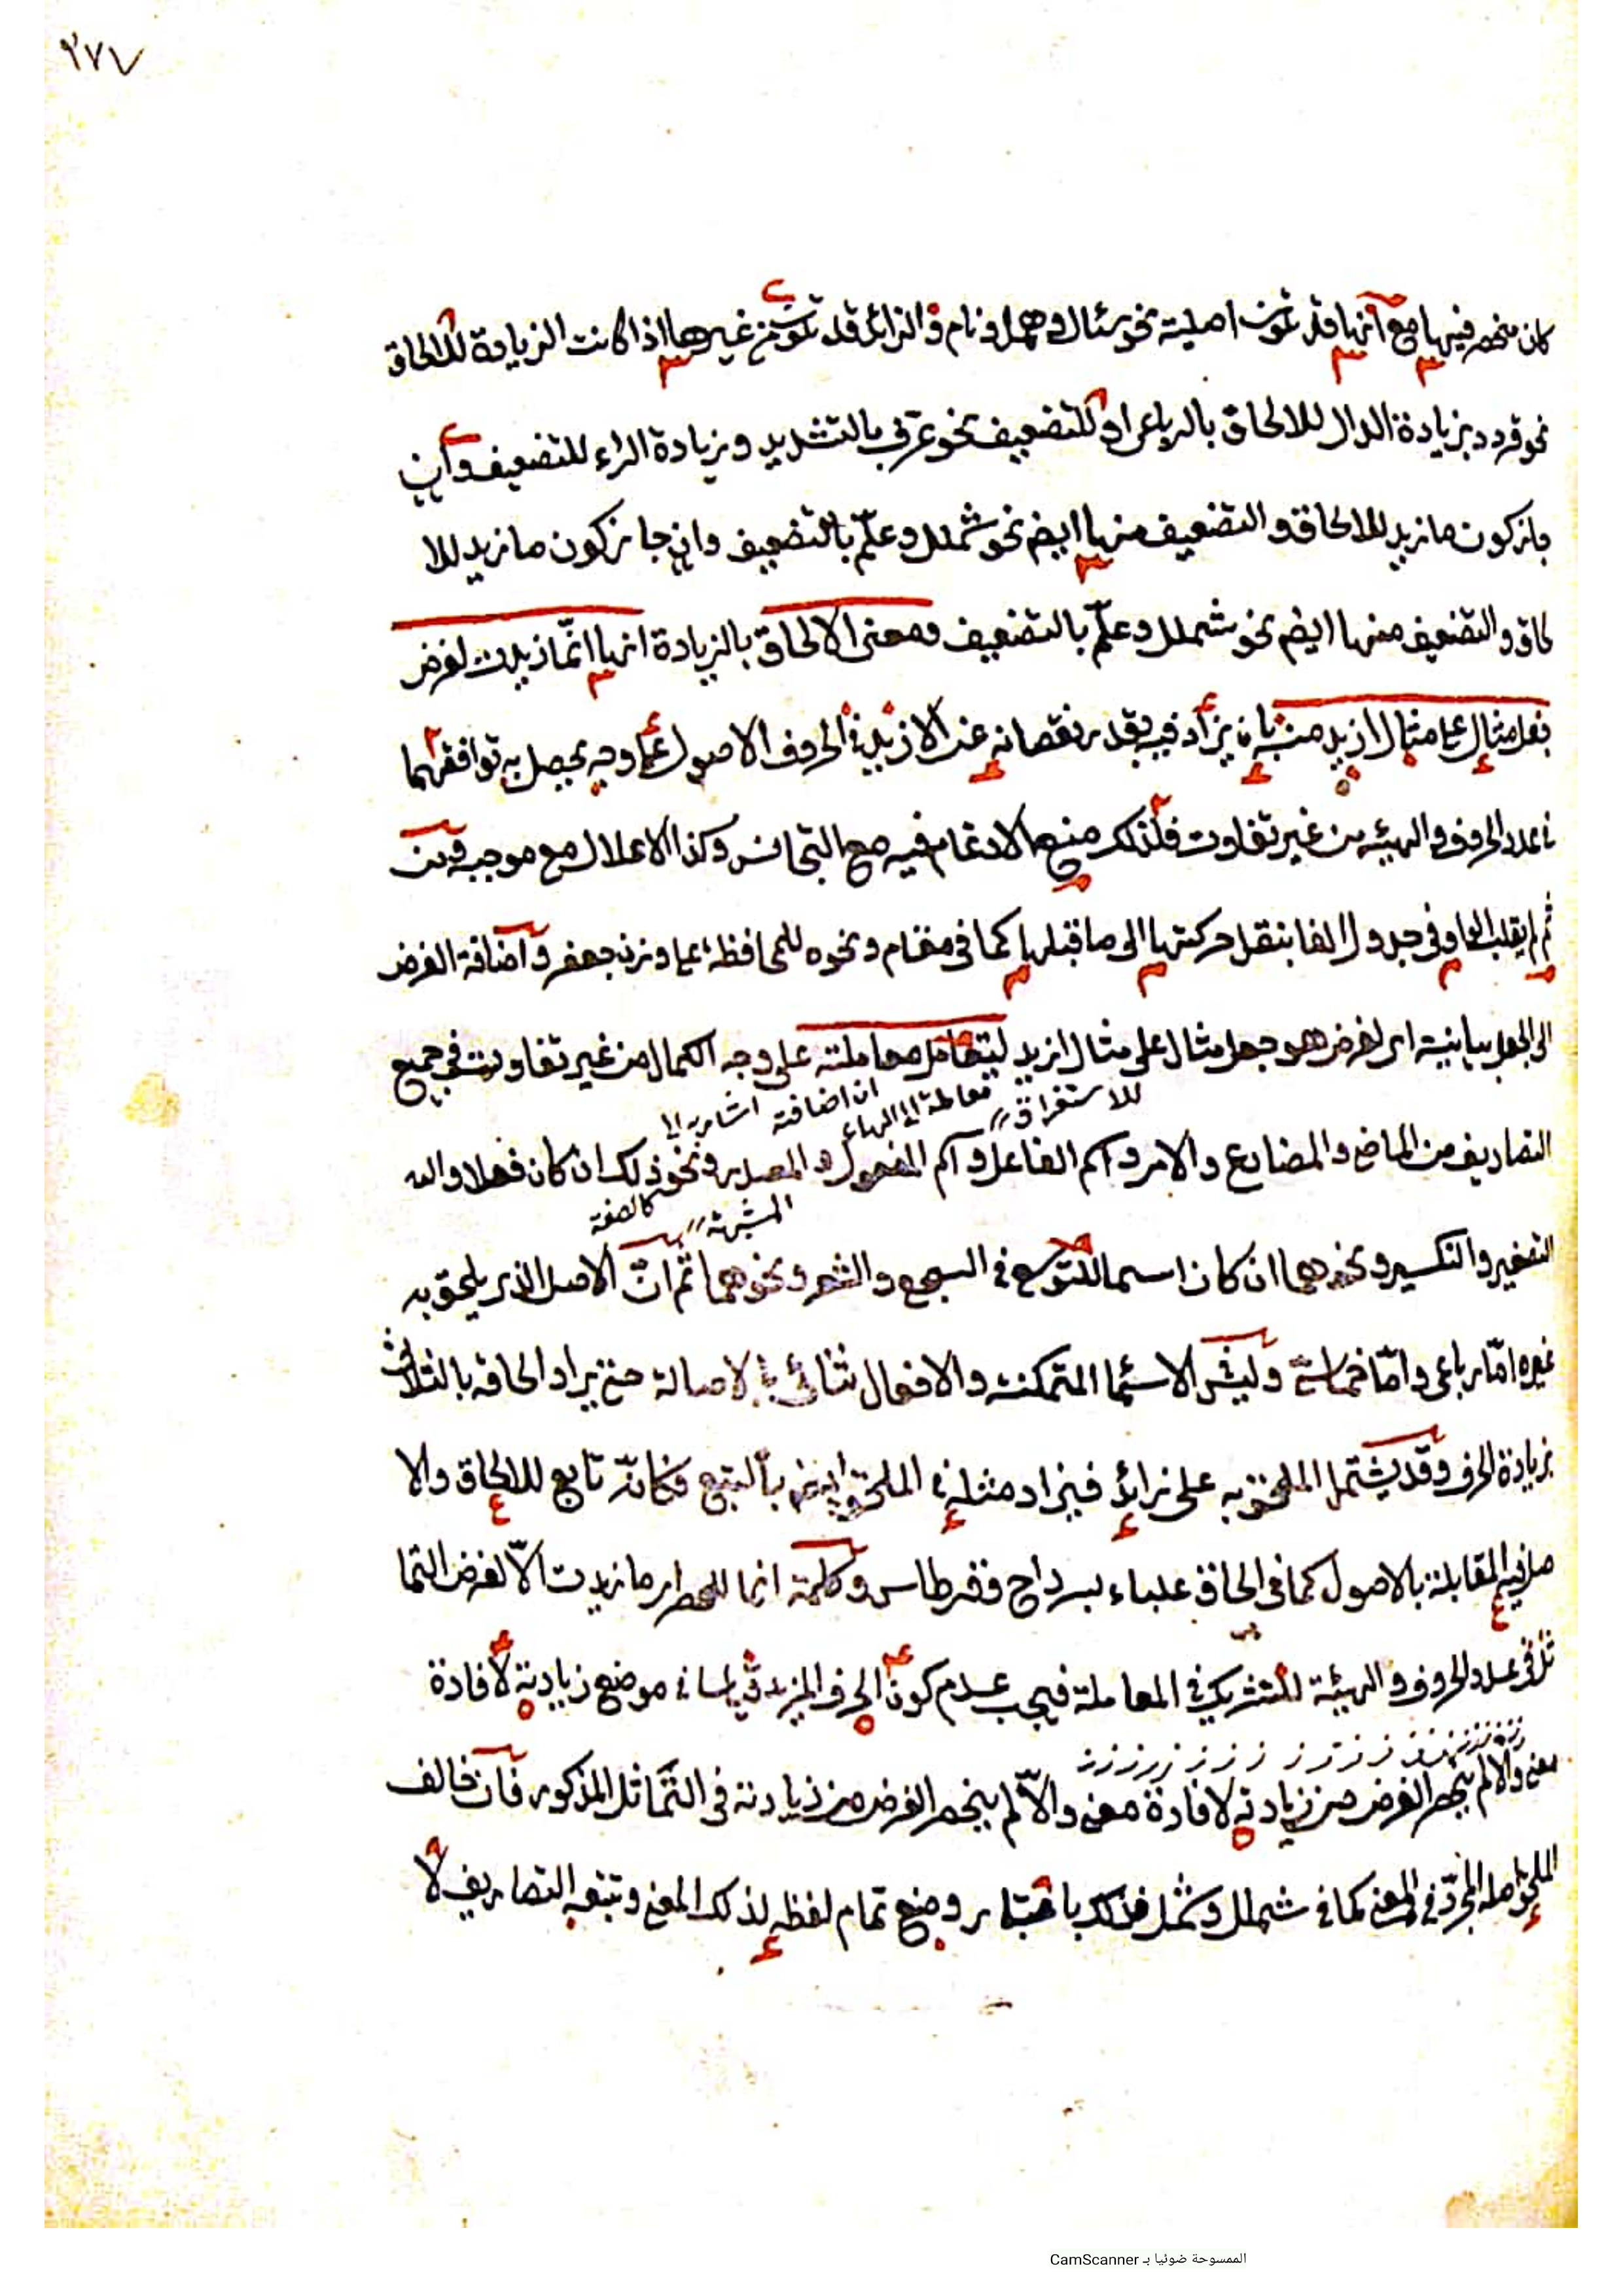 ٢٧٧
كان منحصر فيها مع انها قد تكون اصلية نحو سئال وهمل ونام والزائد قد تكون من غيرها اذا كانت الزيادة للالحاق
نحو قردد بزيادة الدال للالحاق بالرباعي او للتضعيف نحو عرّف بالتشديد وزيادة الراء للتضعيف وان
جاز كون ما زيد للالحاق والتضعيف منها ايضم نحو شملل وعلّم بالتضعيف وان جاز كون ما زيد للا
لحاق والتضعيف منها ايضم نحو شملل وعلّم بالتضعيف ومعنى الالحاق بالزيادة انها انّما زيدت لغرض
جعل مثال على مثال ازيد منه بان يزاد فيه بقدر نقصانه عن الازيد في الحروف الاصول على وجه يحصل به توافقهما
في عدد الحروف والهيئه من غير تفاوت فلذلك منع الادغام فيه مع التجانس وكذا الاعلال مع موجبه ومن
ثم لم يقلب الواو في جدول الفا بنقل حركتها الى ما قبلها كما في مقام ونحوه للمحافظة على وزن جعفر واضافة الغرض
الى الجعل بيانية اى لغرض هو جعل مثال على مثال ازيد ليتعامل معاملته على وجه الكمال من غير تفاوت في جميع
للاستغراق معاملة الى الهاء ان اضافة اشارة الى
التصاريف من الماضي والمضارع والامر واسم الفاعل واسم المفعول والمصدر ونحو ذلك ان كان فعلا والى
المشبهة كالصفة
التصغير والتكسير ونحوهما ان كان اسما للتوسع في السجع والشعر ونحوهما ثم انّ الاصل الذي يلحق به
غيره امّا رباعى وامّا خماسي وليس في الاسماء المتمكنة والافعال ثنائي بالاصالة حتى يراد الحاقه بالثلاث
بزيادة الحرف وقد يشتمل الملحق به على زائد فيزاد مثله في الملحق ايضم بالتبع فكانّه تابع للالحاق والا
صل فيه المقابلة بالاصول كما في الحاق علباء بسرداح وقرطاس وكلمة انما للحصر اى ما زيدت الّا لغرض التما
ثل في عدد الحروف والهيئة للتشريك في المعاملة فيجب عدم كون الحرف المزيد قياسا في موضع زيادته لافادة
معنى والا لم ينحصر الغرض من زيادته لافادة معنى والّا لم ينحصر الغرض من زيادته في التّماثل المذكور فان خالف
الملحق اصله المجرّد في المعنى كما في شملل وشمل فذلك باعتبار وضع تمام لفظه لذلك المعنى وتتبع التصاريف لا
الممسوحة ضوئيا بـ CamScanner